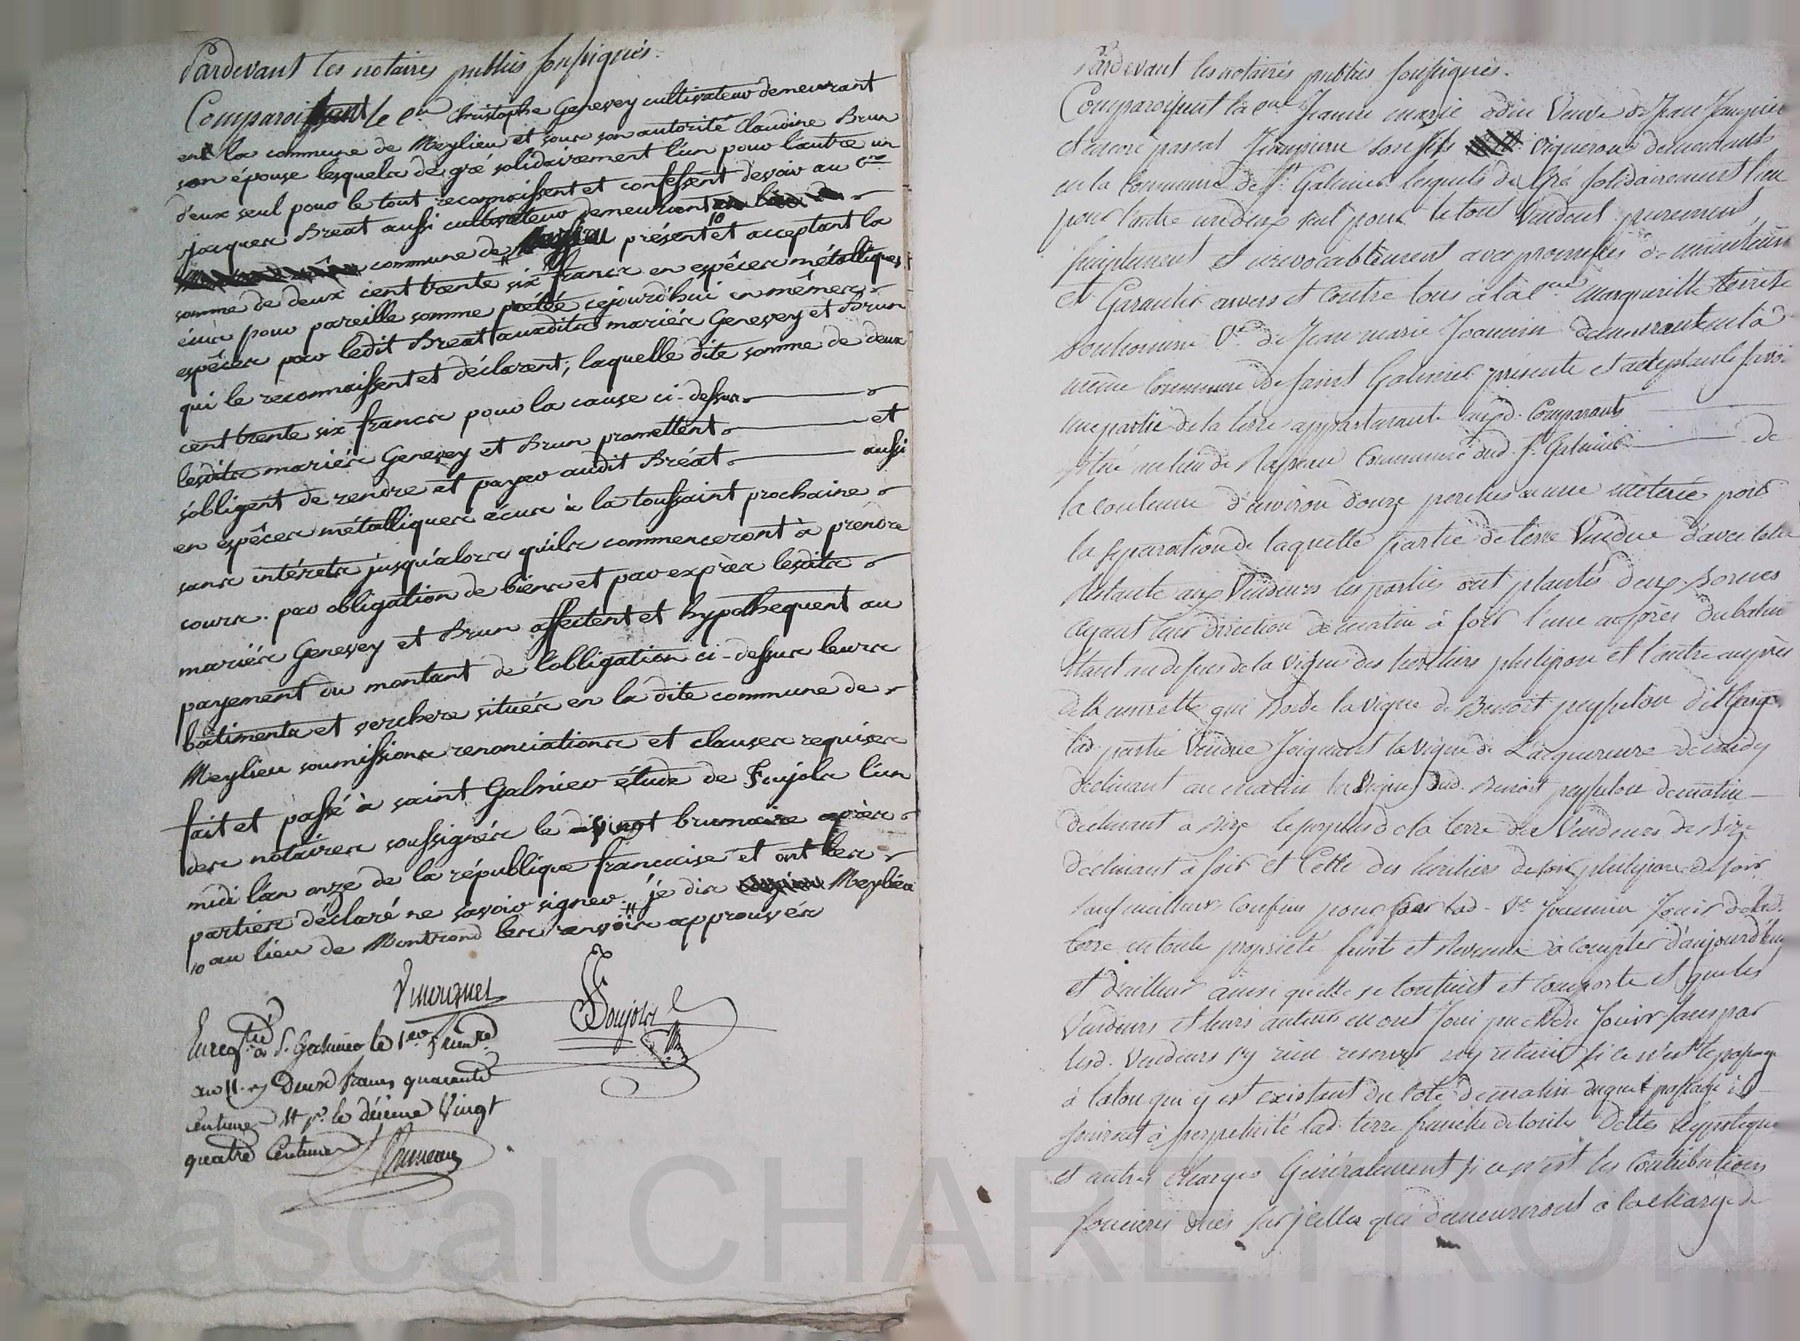 Pardevant les notaires publics soussignés.
Comparoissent le Cen Cristophe Genevey cultivateur demeurant
en la commune de Meylieu et sous son autorité Claudine Brun
son épouse lesquels de gré solidairement l'un pour l'autre un
d'eux seul pour le tout reconnaissent et confessent devoir au Cen
Jacques Bréat aussi cultivateur demeurant
commune de présent et acceptant la
somme de deux cent trente six francs en espèces métalliques
écus pour pareille somme prêtée cejourd'hui en mêmes
espèces par ledit Bréat auxdits mariés Genevey et Brun
qui le reconnaissent et déclarent; laquelle dite somme de deux
cent trente six francs pour la cause ci-dessus
lesdits mariés Genevey et Brun promettent et
s'obligent de rendre et payer audit Bréat aussi
en espèces métalliques écus à la toussaint prochaine
sans intérêts jusqu'alors qu'ils commenceront à prendre
cours. par obligation de biens et par exprès lesdits
mariés Genevey et Brun affectent et hypothequent au
payement du montant de l'obligation ci-dessus leurs
bâtiments et verchere situés en la dite commune de
Meylieu soumissions renonciations et clauses requises
fait et passé à saint Galmier étude de Foujols l'un
des notaires soussignés le vingt brumaire après
midi l'an onze de la république française et ont les
parties déclaré ne savoir signer. je dis Meylieu
au lieu de Montrond les renvois approuvés
Foujols
Enregtré à St Galmier le 1er frimre
an 11. Deux francs quarante
Centimes et pr le décime Vingt
quatre Centimes
Pardevant les notaires publics soussignés.
Comparoissent la Cne Jeanne marie Veuve de Jean
et encore pascal son fils Vignerons demeurants
en la Commune de St Galmier lesquels de Gré solidairement l'un
pour l'autre un deux seul pour le tout Vendent purement,
simplement et irrevocablement avec promesses de maintenir
et Garantir envers et contre tous à la Cne Marguerille
Ve de Jean marie Joannin demeurante en la
même Commune de saint Galmier presente et acceptante savoir
une partie de la terre appartenant auxd. Comparants
située au lieu de Commune dud. St Galmier de
la contenue d'environ douze perches ou une meterée pour
la separation de laquelle partie de terre Vendue d'avec celle
Restante aux Vendeurs les parties ont plantés deux Bornes
ayant leur direction de matin à soir l'une auprès
étant au dessus de la vigne des heritiers philipon et l'autre auprès
de la murette qui Borde la vigne de Benoit peysselon dit
lad. partie Vendue Joignant la vigne de L'acquereure de midy
declinant au matin la Vigne dud. Benoit peysselon de matin
declinant a Bize le surplus de la terre des Vendeurs de Bize
declinant à soir et Celle des heritiers de philipon de soir
sauf meilleurs Confins pour par lad. Ve Joannin Jouir de lad.
terre en toute propriété fruit et Revenu à compter d'aujourd'huy
et d'ailleurs ainsi qu'elle se Contient et comporte et que les
Vendeurs et leurs auteurs en ont Joui pu ou du Jouir sans par
lesd. Vendeurs s'y rien reserver ny retenir si ce n'est le passage
à talon qui y est existant du Coté de matin duquel passage ils
jouiront à perpetuité lad. terre franche de toutes Dettes hypoteques
et autres charges Généralement si ce n'est les Contributions
foncieres dues sur jcelles qui demeureront à la charge de
Pascal CHAREYRON